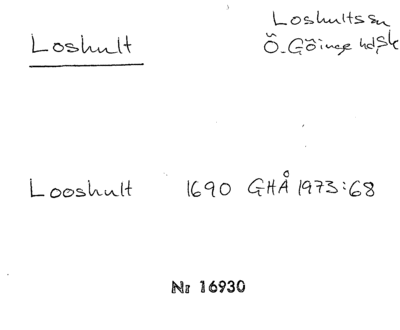 Loshult
Loshultssn
Ö. Göinge hd, Sk
Looshult 1690 GHÅ 1973:68
Nr 16930